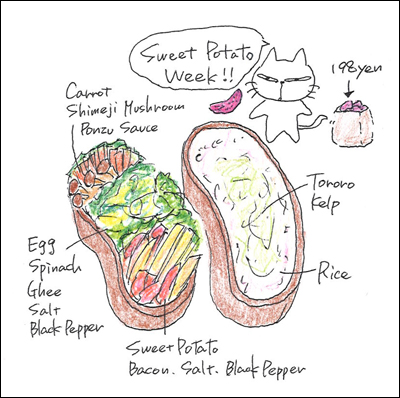 Sweet Potato
Week!!
198yen
Carrot
Shimeji Mushroom
Ponzu Sauce
Tororo
Kelp
Rice
Egg
Spinach
Ghee
Salt
Black Pepper
Sweet Potato
Bacon. Salt. Black Pepper